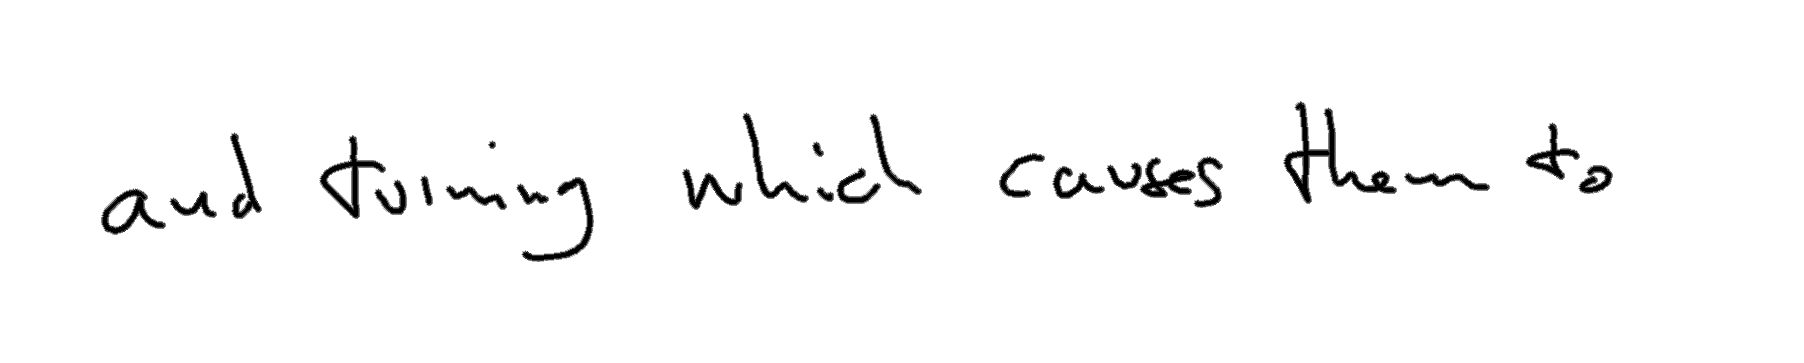 and turning which causes them to